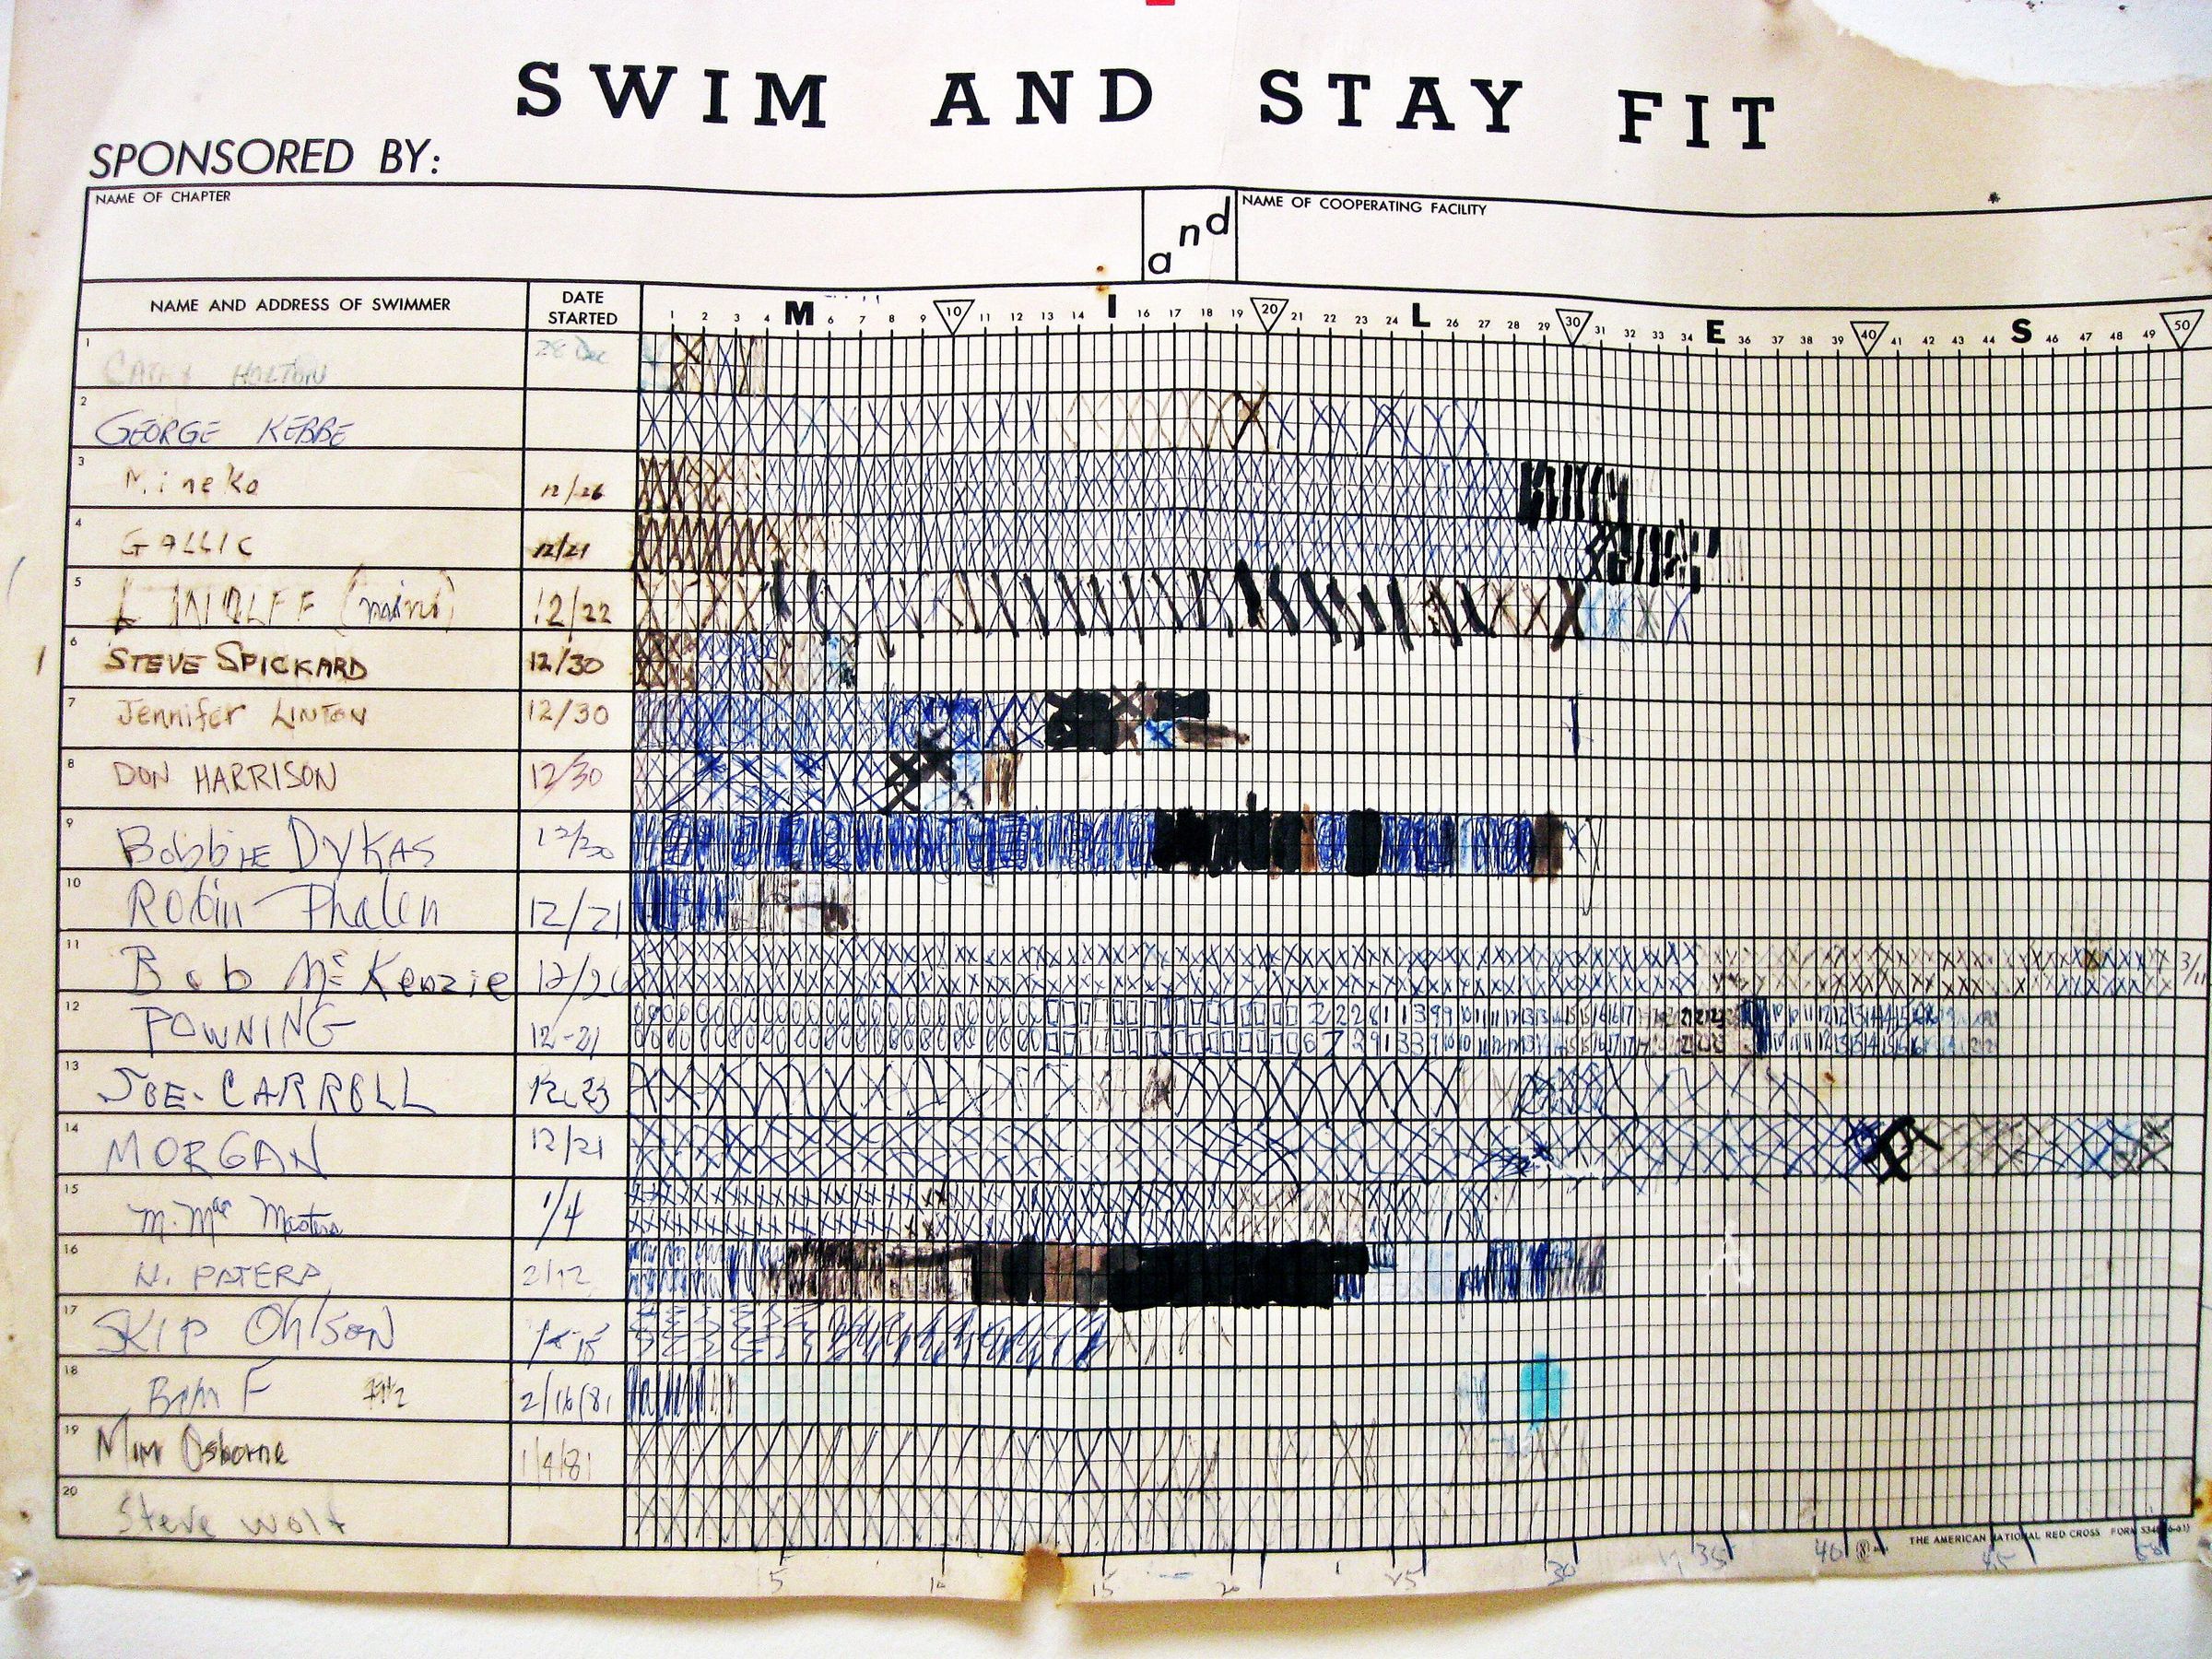 SWIM AND STAY FIT
SPONSORED BY:
NAME OF CHAPTER and NAME OF COOPERATING FACILITY
NAME AND ADDRESS OF SWIMMER DATE STARTED M I L E S
1 2 3 4 6 7 8 9 10 11 12 13 14 16 17 18 19 20 21 22 23 24 26 27 28 29 30 31 32 33 34 36 37 38 39 40 41 42 43 44 46 47 48 49 50
1 CATHY HOLTON 28 Dec
2 GEORGE KEBBE
3 Mineko 12/26
4 GALLIC 12/21
5 12/22
6 STEVE SPICKARD 12/30
7 Jennifer LINTON 12/30
8 DON HARRISON 12/30
9 Bobbie DYKAS 12/30
10 Robin Phalen 12/21
11 Bob McKenzie 12/26 3/11
12 POWNING 12-21
13 JOE CARROLL 12-23
14 MORGAN 12/21
15 M. Mac Masters 1/4
16 N. PATERA 2/12
17 SKIP Ohlson
18 F 2/16/81
19 Mim Osborne 1/4/81
20 Steve Wolf
THE AMERICAN NATIONAL RED CROSS FORM
5 10 15 20 25 30 35 40 45 50